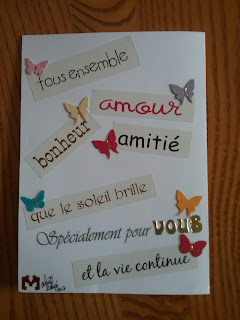 tous ensemble
amour
bonheur
amitié
que le soleil brille
Spécialement pour vous
et la vie continue